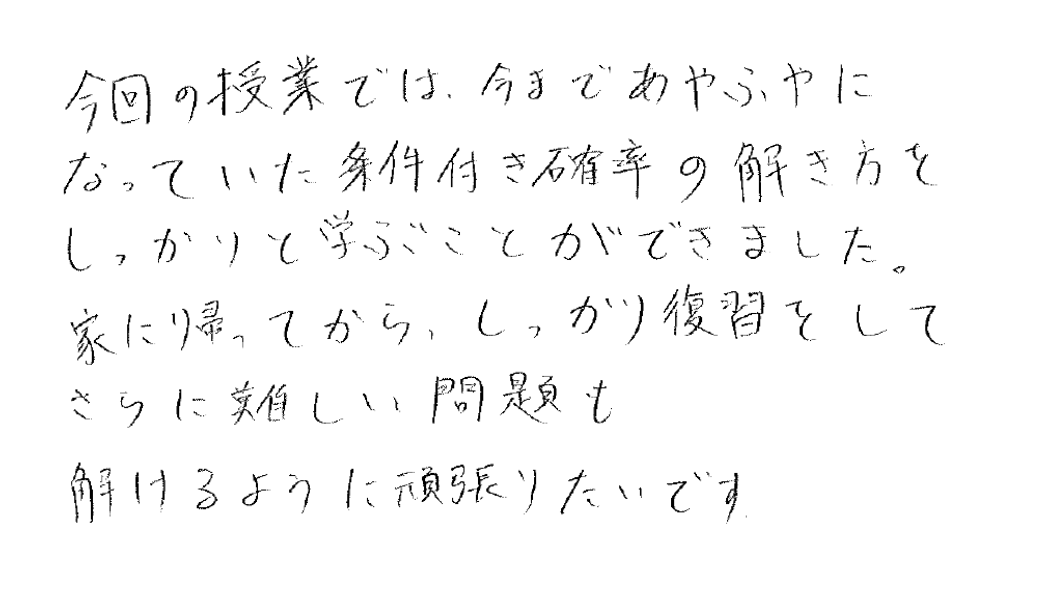 今回の授業では、今まであやふやに
なっていた条件付き確率の解き方を
しっかりと学ぶことができました。
家に帰ってから、しっかり復習をして
さらに難しい問題も
解けるように頑張りたいです